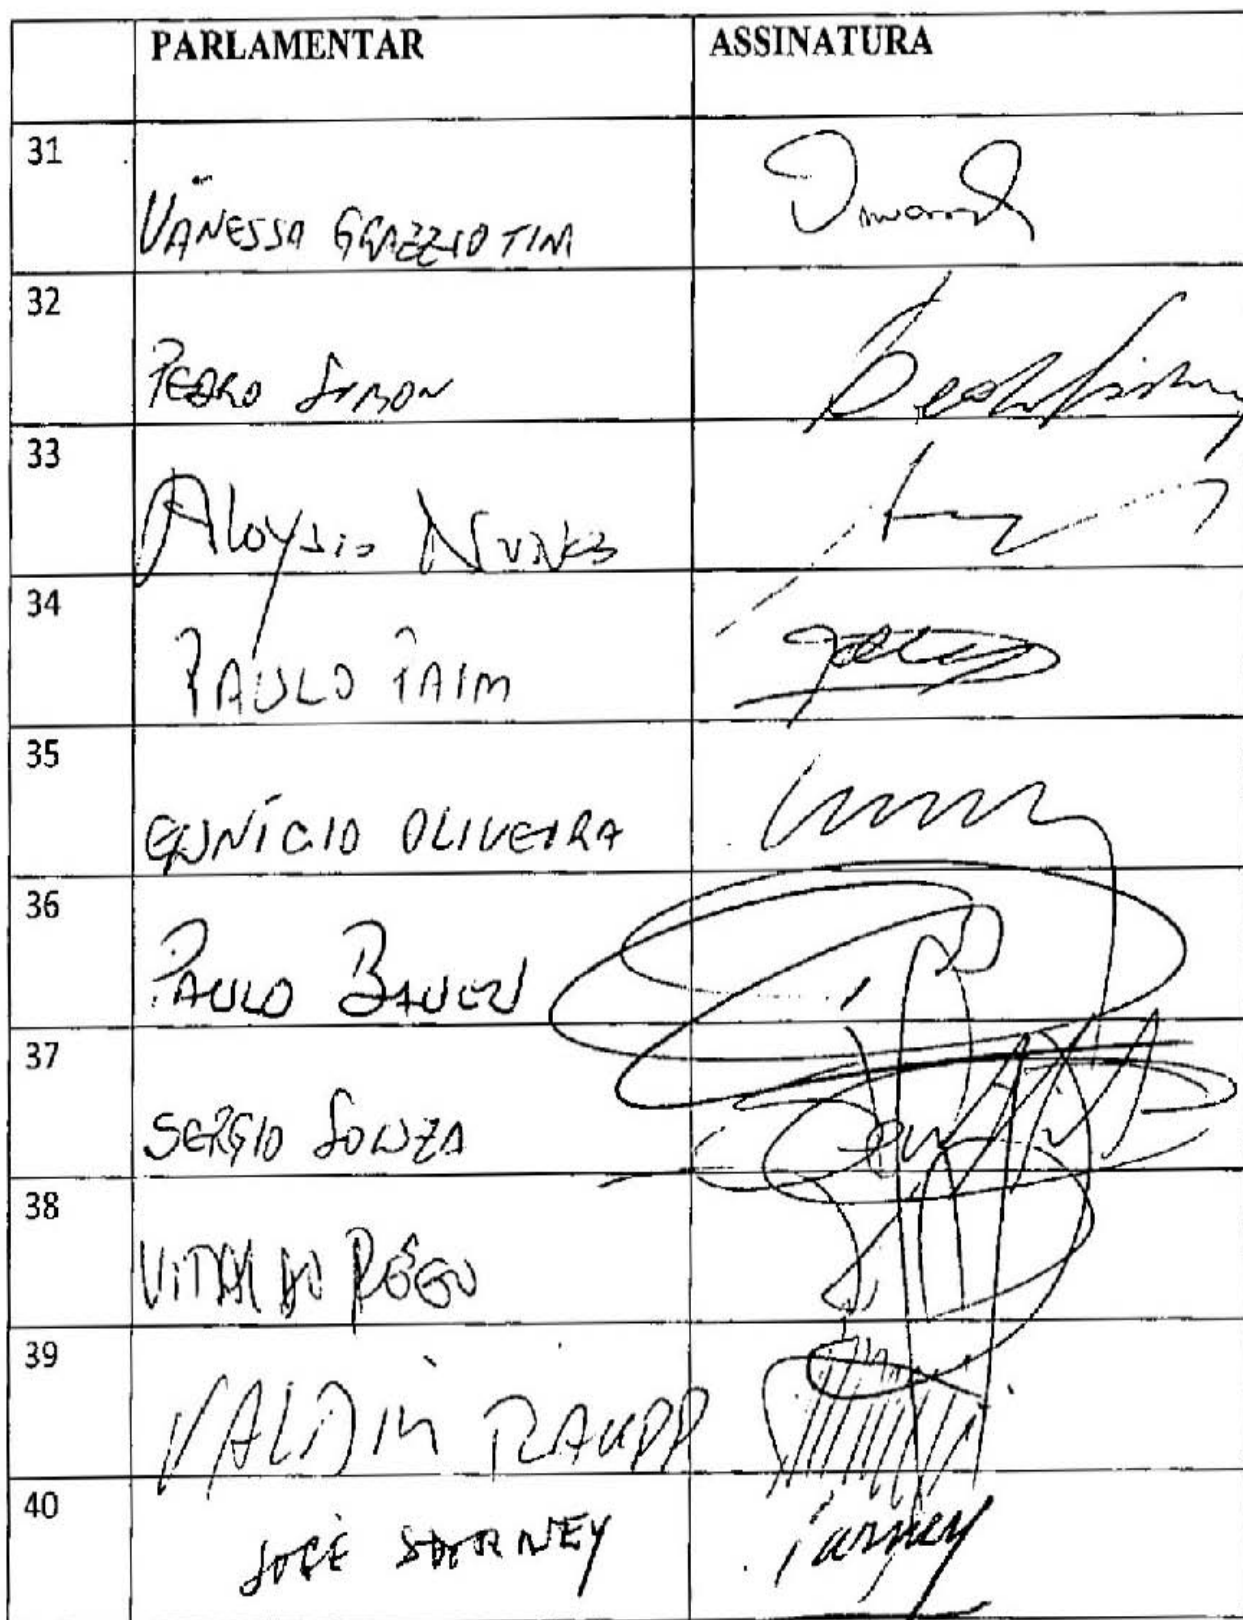 PARLAMENTAR ASSINATURA
31 VANESSA GRAZZIOTIM
32 PEDRO SIMON
33 Aloysio NUNES
34 PAULO PAIM
35 EUNÍCIO OLIVEIRA
36 PAULO BAUER
37 SERGIO SOUZA
38 VITAL DO RÊGO
39 VALDIR RAUPP
40 JOSÉ SARNEY Sarney